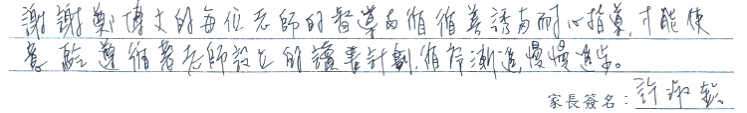 謝謝鄭博文的每位老師的督導與循循善誘與耐心指導,才能使
意齡遵循著老師設立的讀書計劃,循序漸進,慢慢進步。
家長簽名:許淑